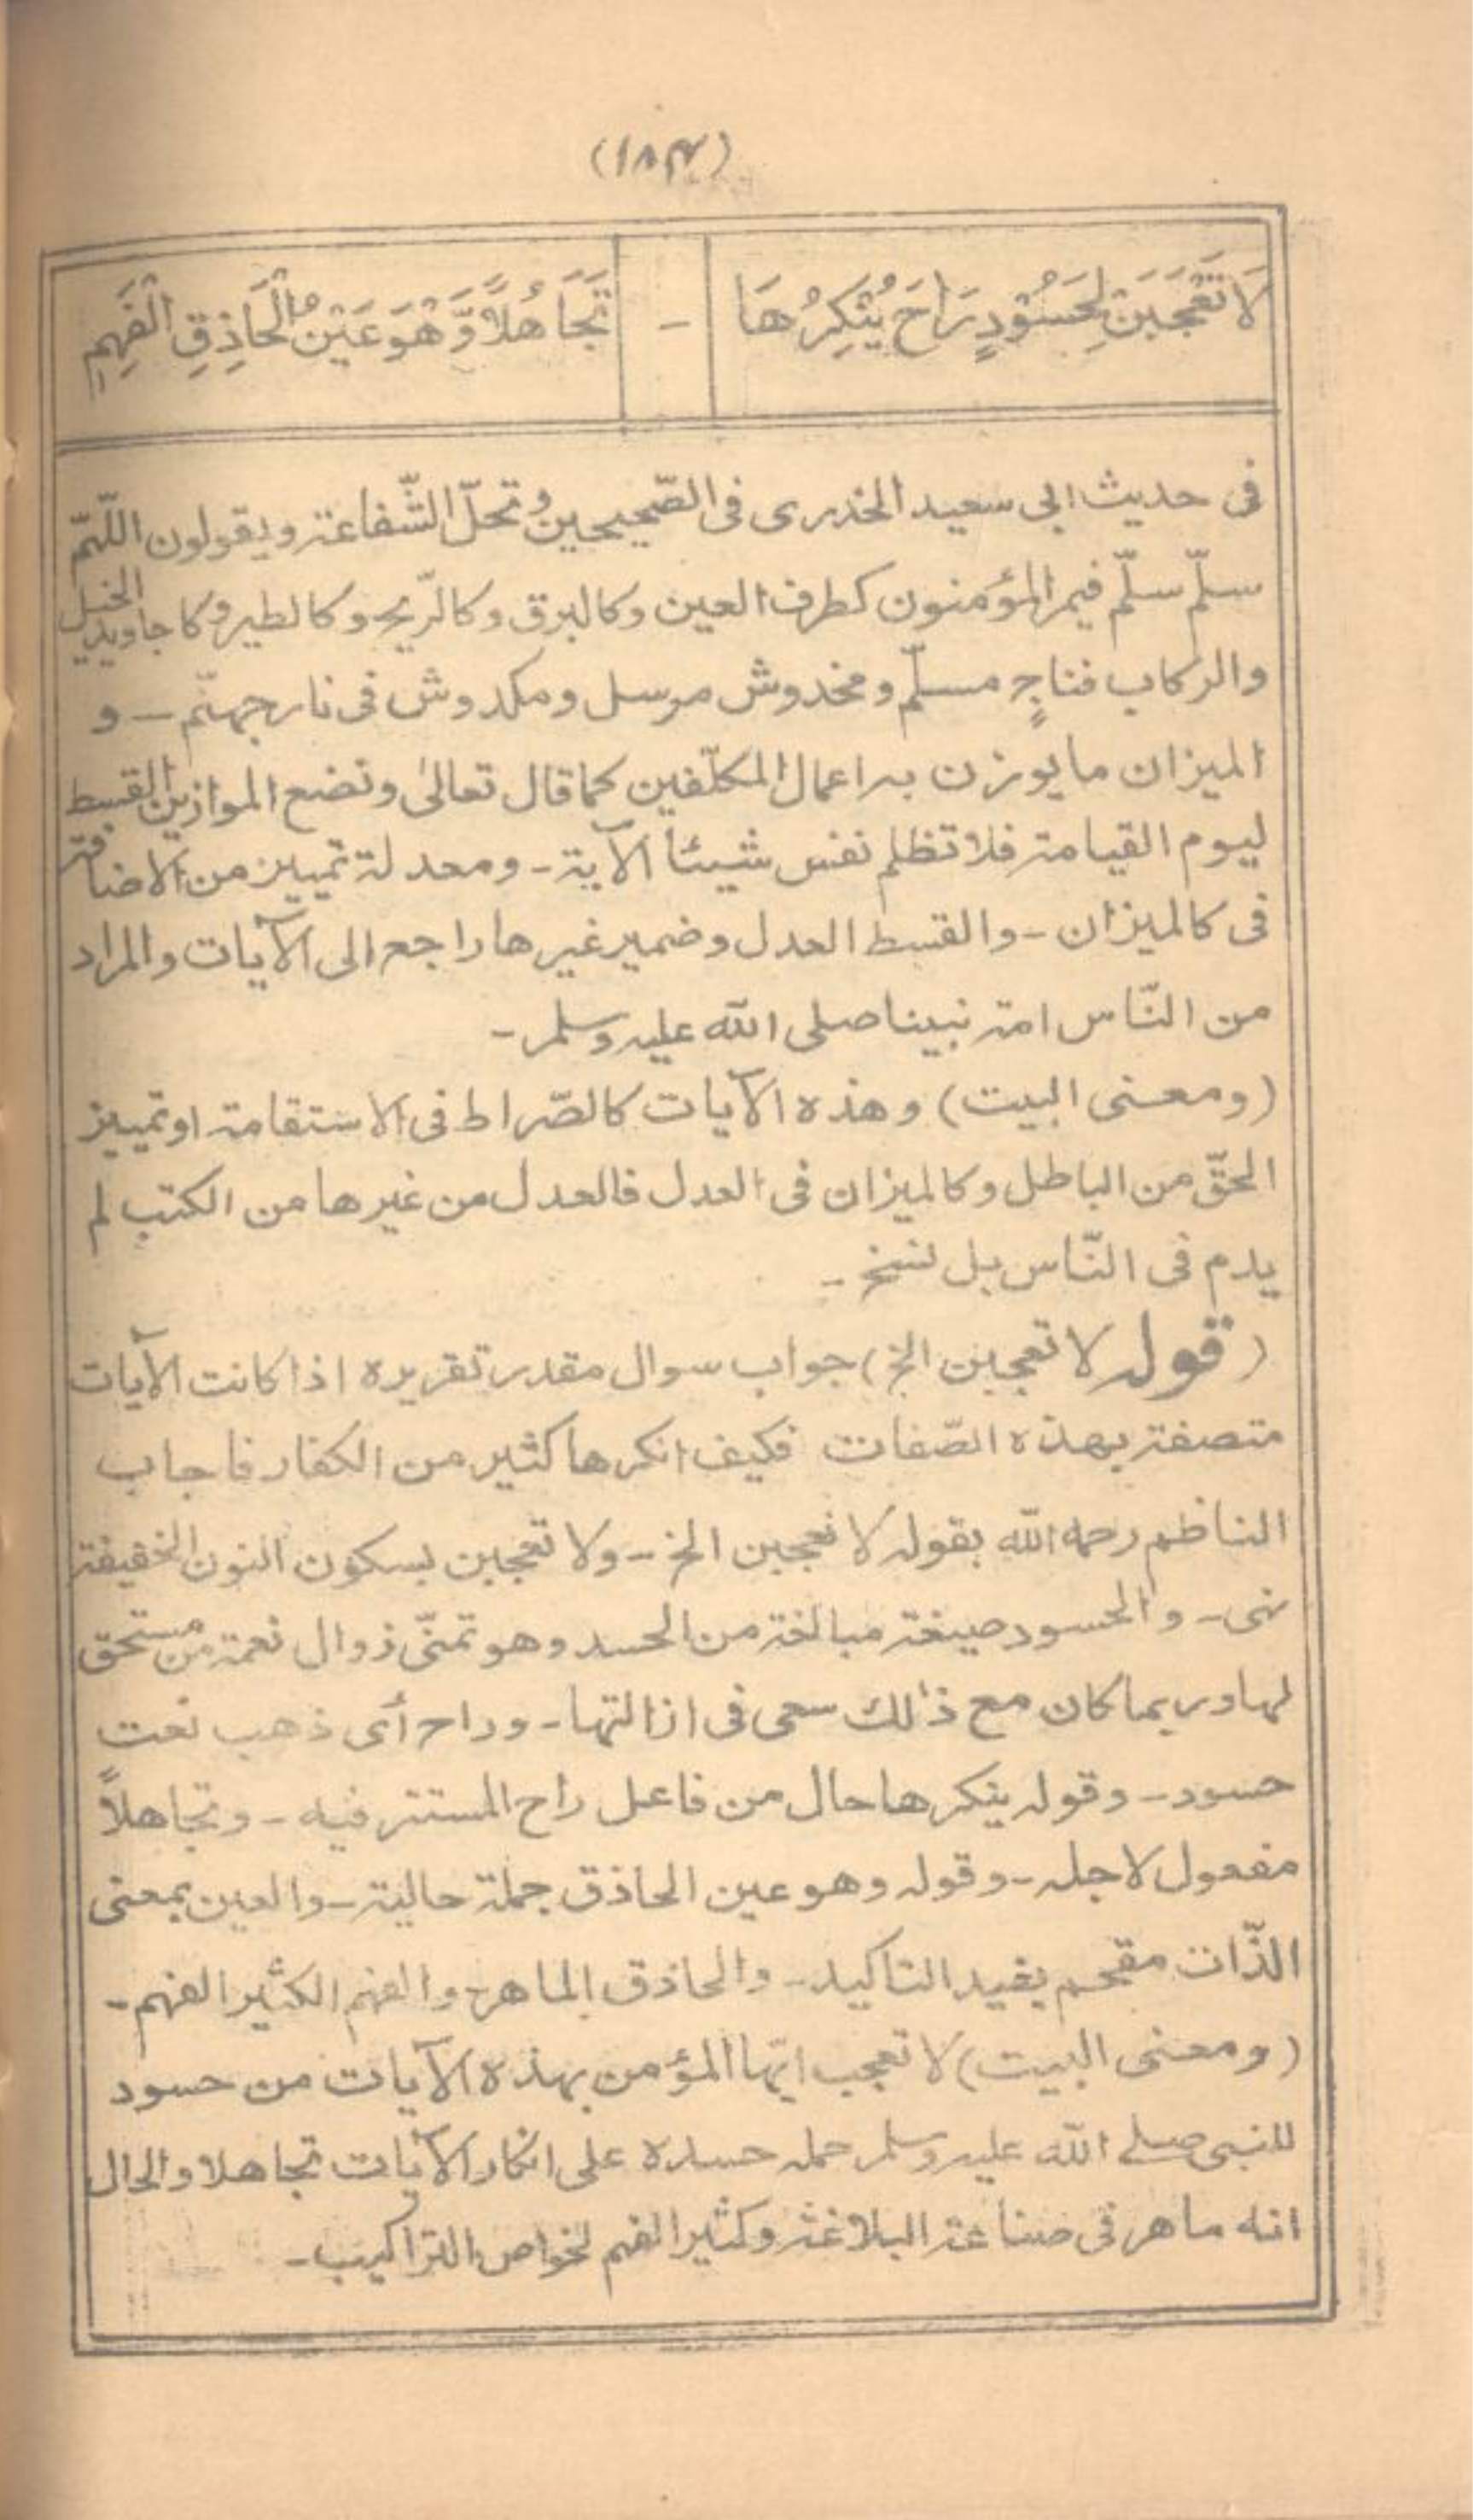 (١٨٣)
لَا تَعْجَبَنْ لِحَسُوْدٍ رَاحَ يُنْكِرُهَا - تَجَاهُلاً وَّهُوَ عَيْنُ الْحَاذِقِ الْفَهِمِ
فى حديث ابى سعيد الخدرى فى الصّحيحين وتحلّ الشّفاعة ويقولون اللّهمّ
سلّم سلّم فيمر المؤمنون كطرف العين وكالبرق وكالرّيح وكالطير وكاجاويد الخيل
والركاب فناجٍ مسلّم ومخدوش مرسل ومكدوش فى نار جهنّم - و
الميزان ما يوزن به اعمال المكلّفين كما قال تعالىٰ ونضع الموازين القسط
ليوم القيامة فلا تظلم نفس شيئا الآية - ومعدلة تمييز من الاضافة
فى كالميزان - والقسط العدل وضمير غيرها راجع الى الآيات والمراد
من النّاس امة نبينا صلى الله عليه وسلم -
(ومعنى البيت) وهذه الآيات كالصّراط فى الاستقامة او تمييز
الحقّ من الباطل وكالميزان فى العدل فالعدل من غيرها من الكتب لم
يدم فى النّاس بل نسخ -
(قوله لا تعجبن الخ) جواب سوال مقدر تقريره اذا كانت الآيات
متصفة بهذه الصّفات فكيف انكرها كثير من الكفار فاجاب
الناظم رحمه الله بقوله لا تعجبن الخ - ولا تعجبن بسكون النون الخفيفة
نهى - والحسود صيغة مبالغة من الحسد وهو تمنّى زوال نعمة من مستحق
لها وربما كان مع ذٰلك سعى فى ازالتها - وراح أى ذهب نعت
حسود - وقوله ينكرها حال من فاعل راح المستتر فيه - وتجاهلاً
مفعول لاجله - وقوله وهو عين الحاذق جملة حالية - والعين بمعنى
الذّات مقحم يفيد التاكيد - والحاذق الماهر والفهم الكثير الفهم -
(ومعنى البيت) لا تعجب ايّها المؤمن بهذه الآيات من حسود
للنبى صلى الله عليه وسلم حمله حسده على انكار الآيات تجاهلا والحال
انه ماهر فى صناعة البلاغة وكثير الفهم لخواص التراكيب -